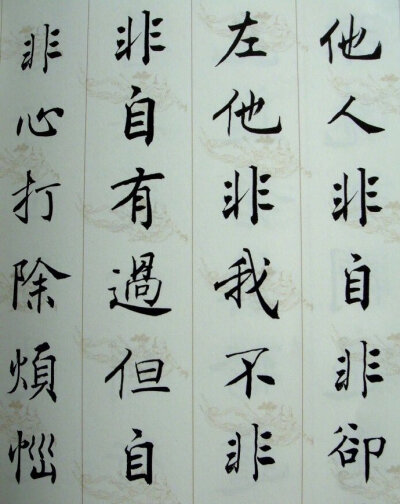 他人非自非卻
左他非我不非
非自有過但自
非心打除煩惱